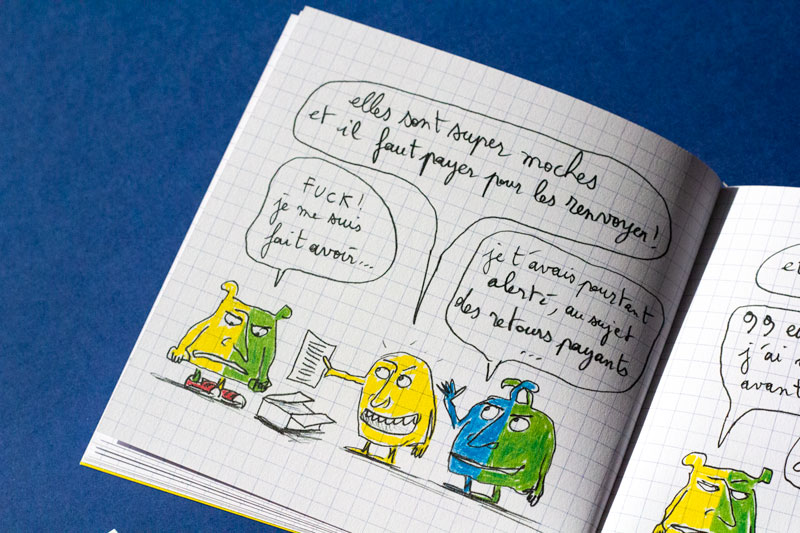 elles sont super moches
et il faut payer pour les renvoyer !
FUCK !
je me suis
fait avoir...
je t'avais pourtant
alerté, au sujet
des retours payants
...
et
99 eu
j'ai
avant